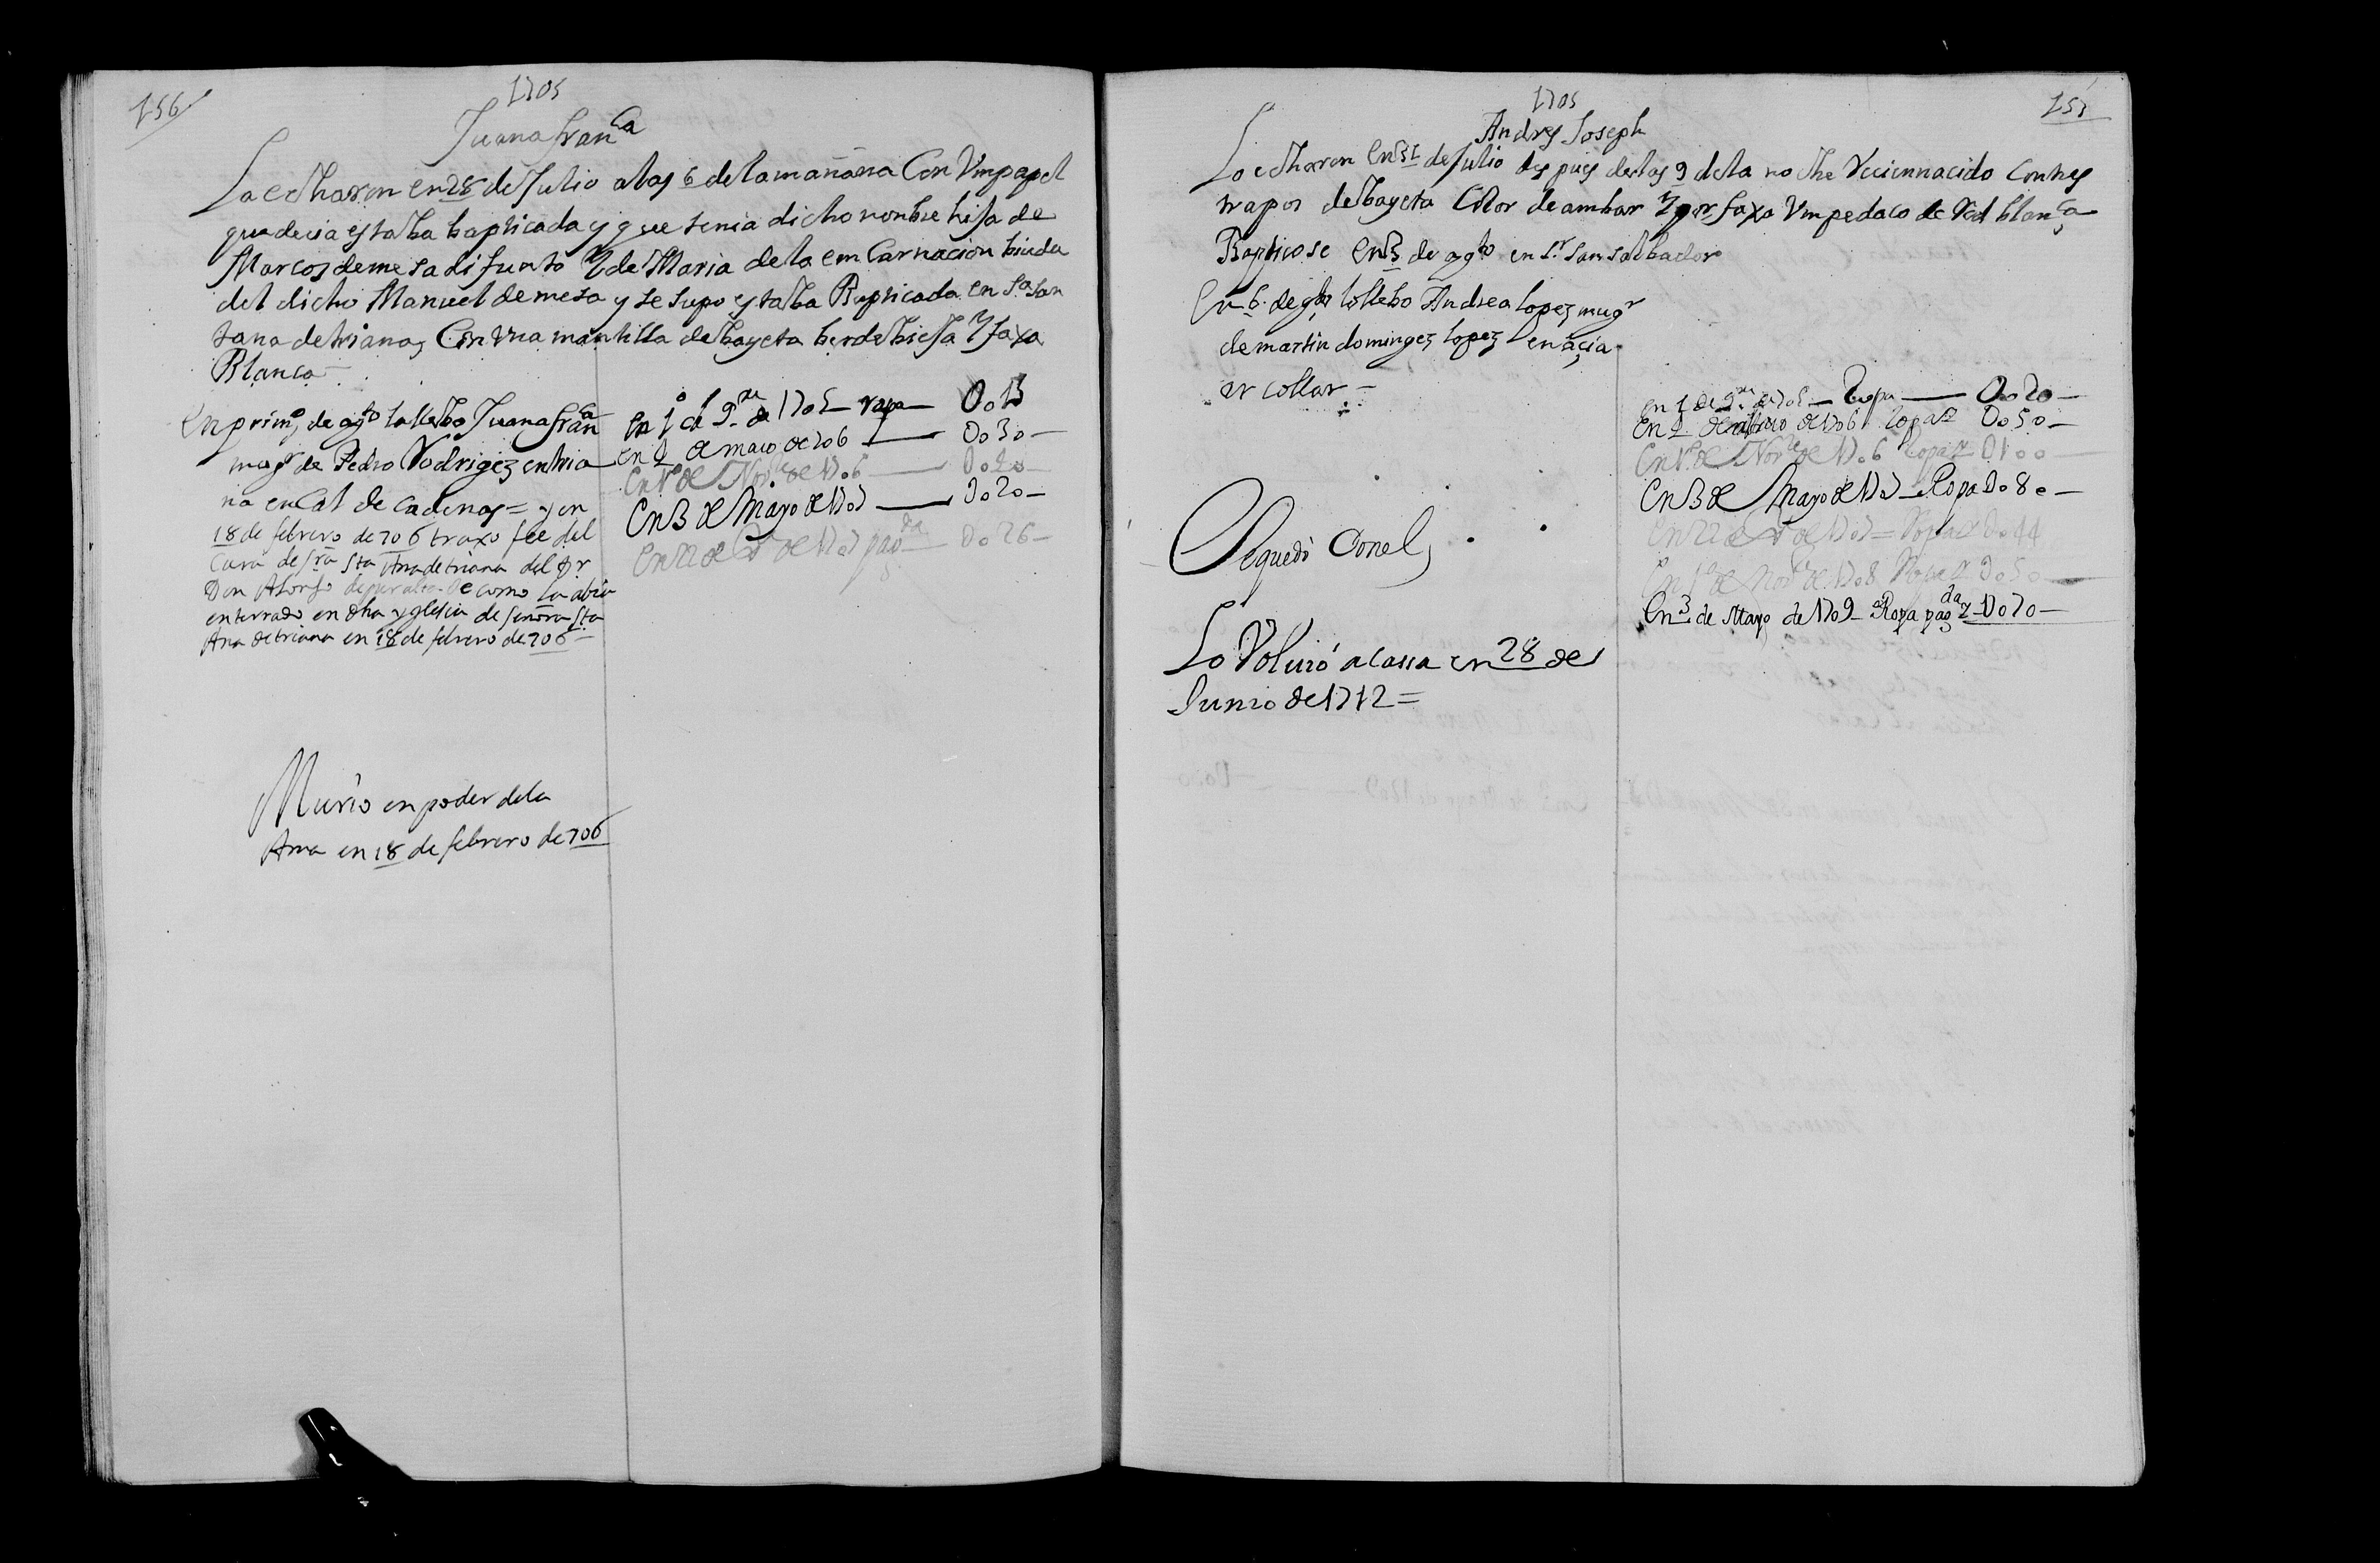 156
1705
Juana franca
La echaron en 28 de Julio a las 6 de la mañana Con Vn papel
que decia estaba baptiçada y que tenia dicho nonbre hija de
Marcos de mesa difunto Y de Maria de la emCarnacion biuda
del dicho Manuel de mesa y se supo estaba Baptiçada en Sa San
tana de triana, Con Vna mantilla de bayeta berde bieja Y faxa
Blanca
En primo de agto la llebo Juana franca
mugr de Pedro Rodrigez en tria
na en Cal de cadenas = y en
18 de febrero de 706 traxo fee del
Cura de sra sta Ana de triana del Dr
Don Alonso de peralta de como la abia
enterrado en dha yglesia de señora sta
Ana de triana en 18 de febrero de 706
en 1o de 9re de 1705 ropa Do 15
en 2 de maio de 706 Do 30
En 1o de Nore de 1706 Do 20
En 3 de Mayo de 1707 Do 20
En 22 de de 1707 pagda Do 26
Murio en poder de la
Ama en 18 de febrero de 706
157
1705
Andres Joseph
Lo echaron en 31 de Julio des pues de las 9 de la noche Recien nacido Con tres
trapos de bayeta Color de ambar Y por faxa Vn pedaco de Red blanca
Baptiçose en 3 de agto en Sr San Salbador
En 6 de lo llebo Andrea lopez mugr
de martin dominges lopez en açia
er collar
en 1 de 9re de 1705 Ropa Do 20
En 2 de maio de 1706 Ropa Do 50
En 1o de Nore de 1706 Ropa D100
En 3 de Mayo de 1707 Ropa Do 80
En 22 de de 1707 = Ropa Do 44
En 1o de Nore de 1708 Ropa Do 50
En 3 de Mayo de 1709 Ropa pagda Do 70
Se quedó Con el
Lo Volvió a cassa en 28 de
Junio de 1712 =